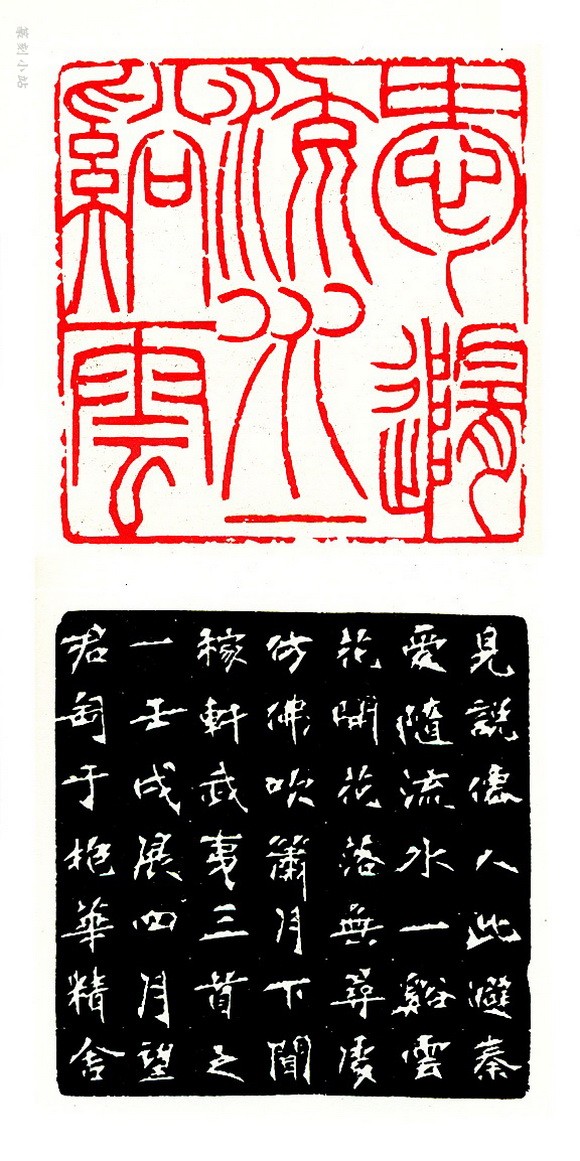 篆刻小站
愛隨
流水一
谿雲
見說僊人此避秦
愛隨流水一谿雲
花開花落無尋處
仿佛吹簫月下聞
稼軒武夷三首之
一壬戌展四月望
君匋于抱華精舍